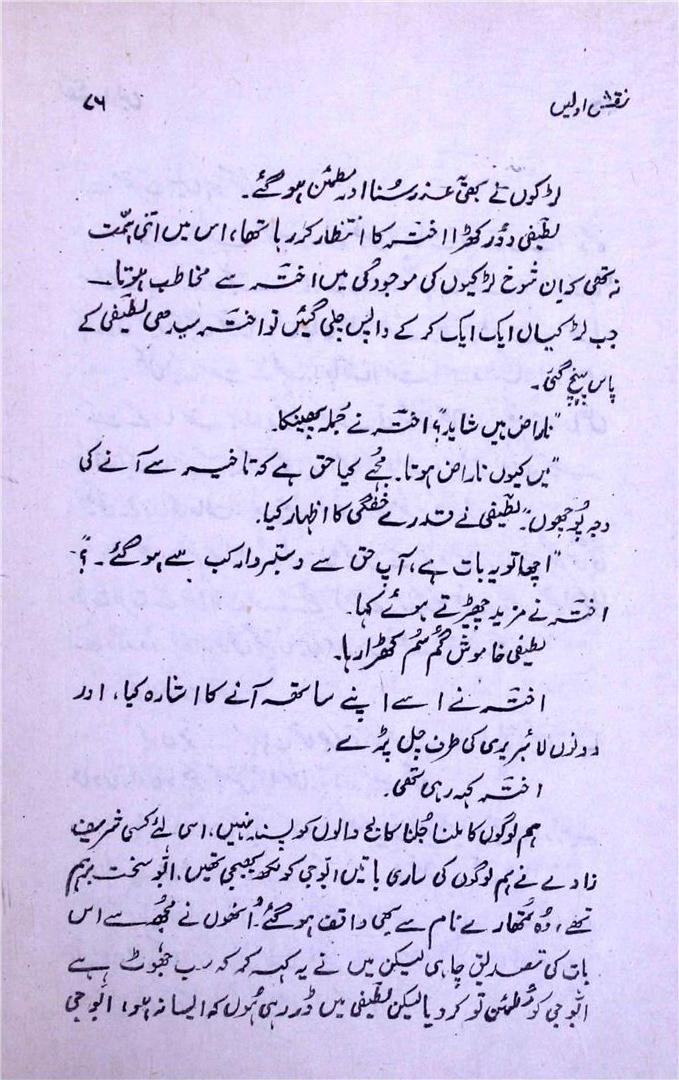 نقش اولیں ۷۶
لڑکوں نے بھی عذر سنا اور مطمئن ہو گئے۔
لطیفی دور کھڑا اختر کا انتظار کر رہا تھا، اس میں اتنی ہمّت
نہ تھی کہ ان شوخ لڑکیوں کی موجودگی میں اختر سے مخاطب ہوتا۔
جب لڑکیاں ایک ایک کر کے واپس چلی گئیں تو اختر سیدھی لطیفی کے
پاس پہنچ گئی۔
"ناراض ہیں شاید"؟ اختر نے جُملہ پھینکا۔
"میں کیوں ناراض ہوتا۔ مجھے کیا حق ہے کہ تاخیر سے آنے کی
وجہ پُوچھوں"۔ لطیفی نے قدرے خفگی کا اظہار کیا۔
"اچھا تو یہ بات ہے، آپ حق سے دستبردار کب سے ہو گئے۔؟"
اختر نے مزید چھیڑتے ہوئے کہا۔
لطیفی خاموش گُم سُم کھڑا رہا۔
اختر نے اسے اپنے ساتھ آنے کا اشارہ کیا، اور
دونوں لائبریری کی طرف چل پڑے۔
اختر کہہ رہی تھی۔
ہم لوگوں کا ملنا جُلنا کالج والوں کو پسند نہیں، اسی لئے کسی شریف
زادے نے ہم لوگوں کی ساری باتیں ابّو جی کو لکھ بھیجی تھیں۔ ابّو سخت برہم
تھے، وُہ تمُھارے نام سے بھی واقف ہو گئے۔ اُنھوں نے مُجھ سے اس
بات کی تصدیق چاہی لیکن میں نے یہ کہہ کر کہ سب جھُوٹ ہے
ابّو جی کو مُطمئن تو کر دیا لیکن لطیفی میں ڈر رہی ہُوں کہ ایسا نہ ہو، ابّو جی